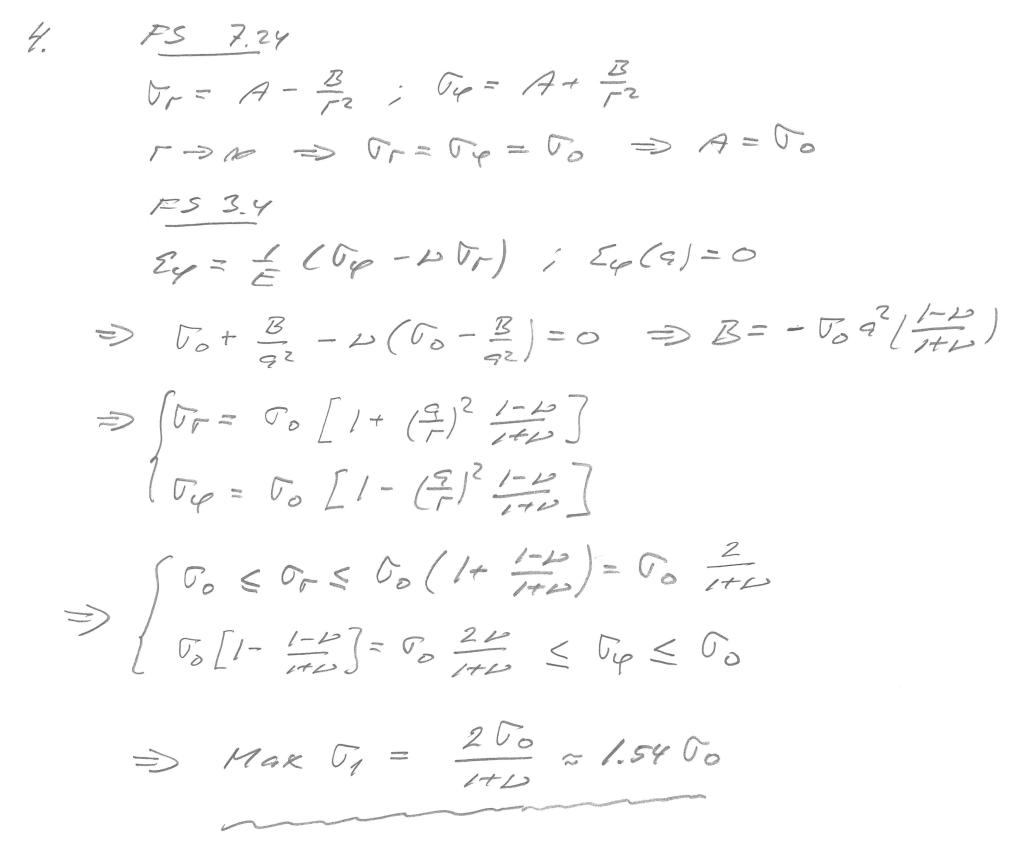 4. FS 7.24
σr = A - B/r² ; σφ = A + B/r²
r → ∞ ⇒ σr = σφ = σ₀ ⇒ A = σ₀
FS 3.4
εφ = 1/E (σφ - νσr) ; εφ(a) = 0
⇒ σ₀ + B/a² - ν(σ₀ - B/a²) = 0 ⇒ B = - σ₀ a² ((1-ν)/(1+ν))
⇒ { σr = σ₀ [1 + (a/r)² (1-ν)/(1+ν)]
σφ = σ₀ [1 - (a/r)² (1-ν)/(1+ν)]
⇒ { σ₀ ≤ σr ≤ σ₀ (1 + (1-ν)/(1+ν)) = σ₀ 2/(1+ν)
σ₀ [1 - (1-ν)/(1+ν)] = σ₀ 2ν/(1+ν) ≤ σφ ≤ σ₀
⇒ Max σ₁ = 2σ₀/(1+ν) ≈ 1.54 σ₀